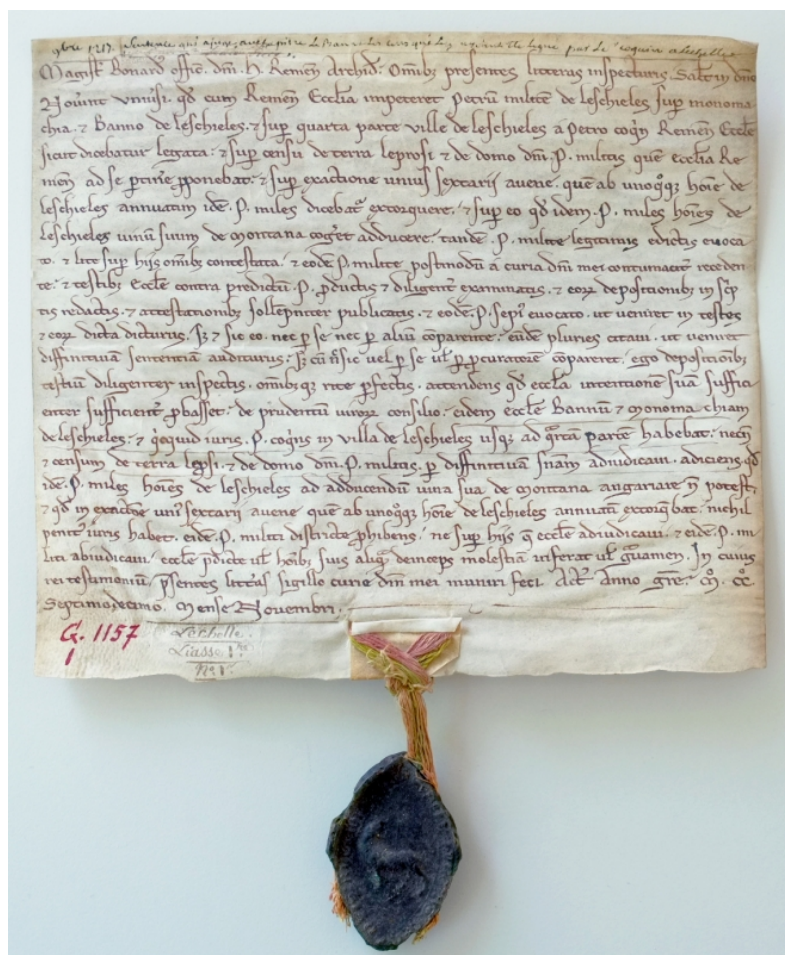 9bre 1217. Sentence qui ajuge au chapitre le Ban et les cens que luy avoient été legué par le coquin a Lechelle
Magist̄ Bonard offic̄. dn̄i. H. Remen̄ Archid̄. Omnib; presentes litteras inspecturis. Salt̄ in dn̄o
Nouint vniu͛si. qd̄ cum Remen̄ Eccl̄ia impeteret Petrū militē de leschieles sup̄ monoma-
chia. ⁊ Banno de leschieles. ⁊ sup̄ quarta parte ville de leschieles a Petro coq̄n Remen̄ Eccl̄e
sicut dicebatur legata: ⁊ sup̄ censu de terra leprosi ⁊ de domo dn̄i. P. militis que eccl̄ia Re
men̄ ad se ptin̄e p̄ponebat: ⁊ sup̄ exactione unius sextarij auene. que ab unoq̊q; hoīe de
leschieles annuatim idē. P. miles dicebat̄ extorquere. ⁊ sup̄ eo qd̄ idem. P. miles hoīes de
leschieles uinū suum de montana coḡet adducere. tandē. P. milite legitimis edictis euoca
to. ⁊ lite sup̄ hijs om̄ib; contestata. ⁊ eodē P. milite postmodū a curia dn̄i mei contumacit̄ receden
te: ⁊ testib; Eccl̄e contra predictū P. p̄ductis ⁊ diligent̄ examinatis. ⁊ eoꝝ depositionib; in sc̄p
tis redactis. ⁊ attestationib; sollēpnit̄er publicatis. ⁊ eodē. P. sepi᷒ euocato. ut ueniret in testes
⁊ eoꝝ dicta dicturus. Iꝫ ⁊ sic eo. nec p̱ se nec p̱ aliū cōparente: eūdē pluries citaui. ut ueniret
diffinitiuā sententiā auditurus: Iꝫ cū n̄ sic uel p̱ se ul̄ p̱ p̄curatorē cōpareret. ego depositionib;
testiū diligenter inspectis. omib;q; rite p̱fectis. attendens qd̄ eccl̄a intentionē suā suffici
enter sufficient̄ p̄basset: de prudentū uiroꝝ consilio: eidem eccl̄e Bannū ⁊ monoma chiam
de leschieles: ⁊ q̊cquid iuris. P. coq̄ns in villa de leschieles usq; ad q̄rtā partē habebat: necn̄
⁊ censum de terra lep̄si. ⁊ de domo dn̄i. P. militis. p̱ diffinitiuā sn̄iam adiudicaui. adiciens qd̄
idē. P. miles hoīes de leschieles ad adducendū uina sua de montana angariare n̄ potest:
⁊ qd̄ in exactiōe uni᷒ sextarij auene que ab unoq̊q; hoīe de leschieles annuatī extorq̄bat: nichil
penit᷒ iuris habet. eidē. P. militi districte p̱hibens: ne sup̄ hijs q̄ eccl̄e adiudicaui. ⁊ eidē. P. mi
liti abiudicaui. eccl̄e p̄dicte ul̄ hoīb; suis aliq̄ deinceps molestiā inferat ul̄ g̊uamen. In cuius
rei testimoniū p̄sentes litt̄as sigillo curie dn̄i mei muniri feci. Act̄. Anno gr̄e. M̊. CC̊.
Septimodecimo. Mense Nouembri.
G. 1157
1
Lechelle.
Liasse 1re
No 1r.